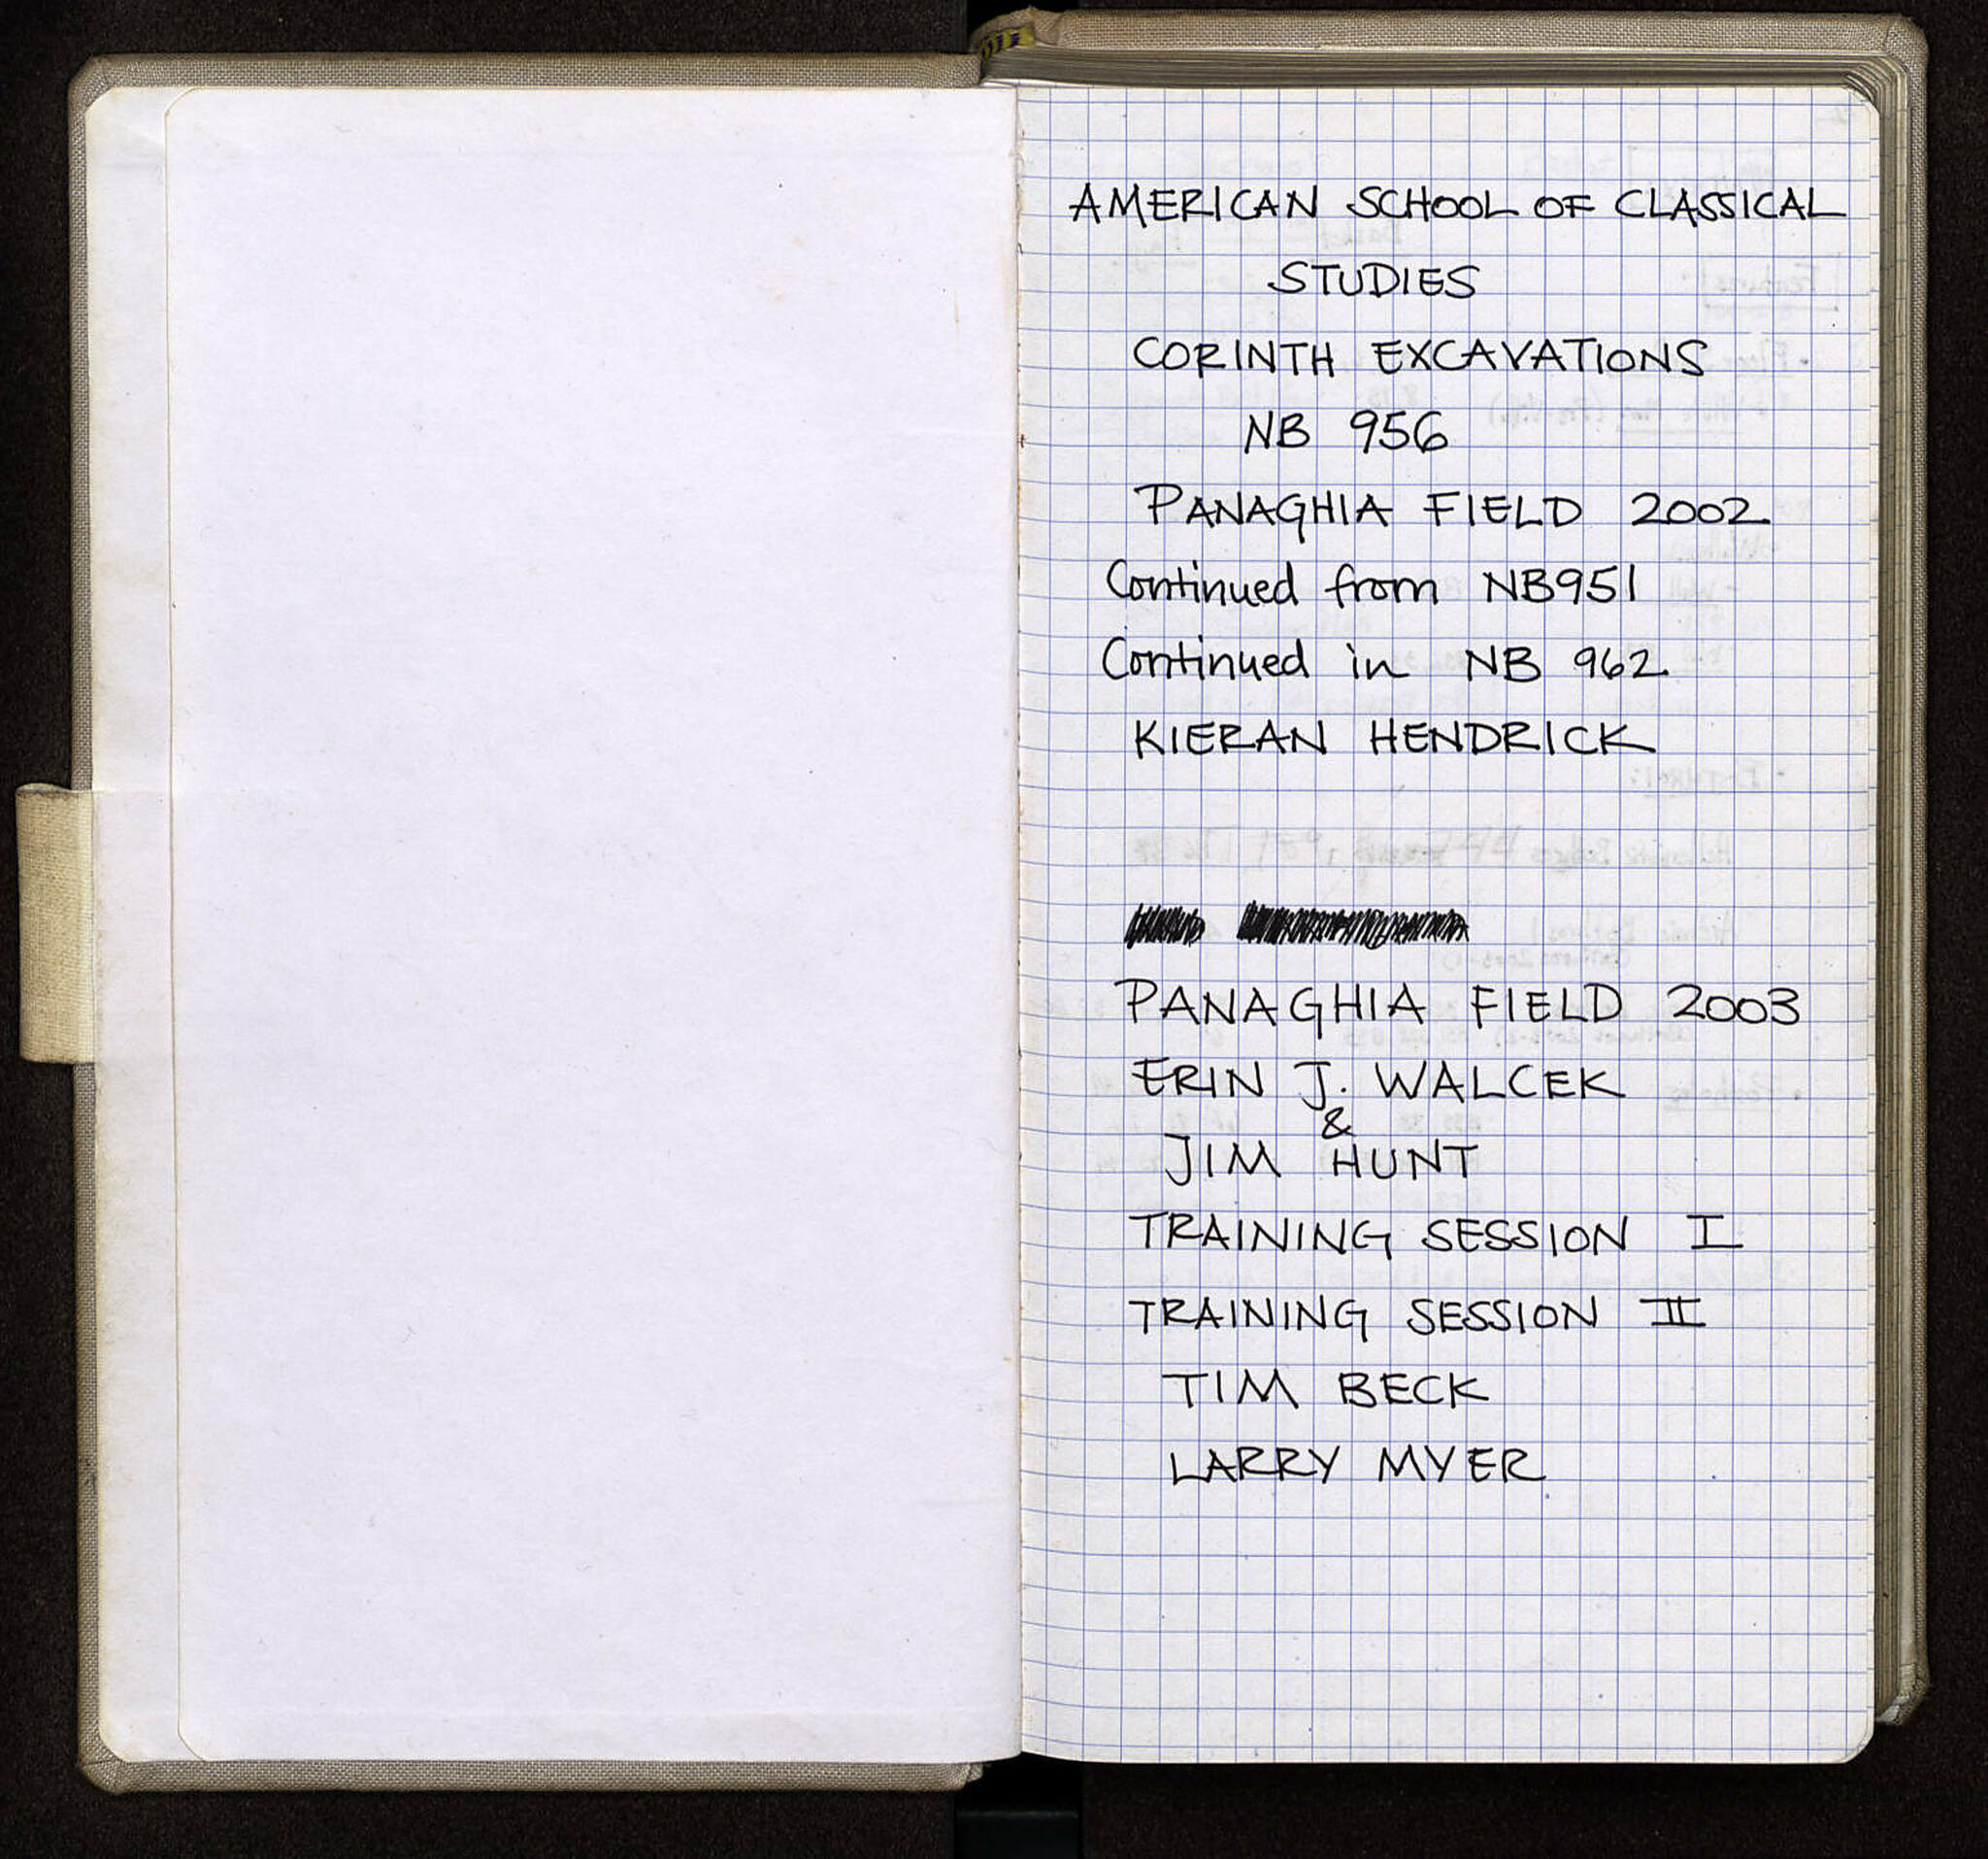 AMERICAN SCHOOL OF CLASSICAL
STUDIES
CORINTH EXCAVATIONS
NB 956
PANAGHIA FIELD 2002
Continued from NB951
Continued in NB 962
KIERAN HENDRICK
PANAGHIA FIELD 2003
ERIN J. WALCEK
&
JIM HUNT
TRAINING SESSION I
TRAINING SESSION II
TIM BECK
LARRY MYER